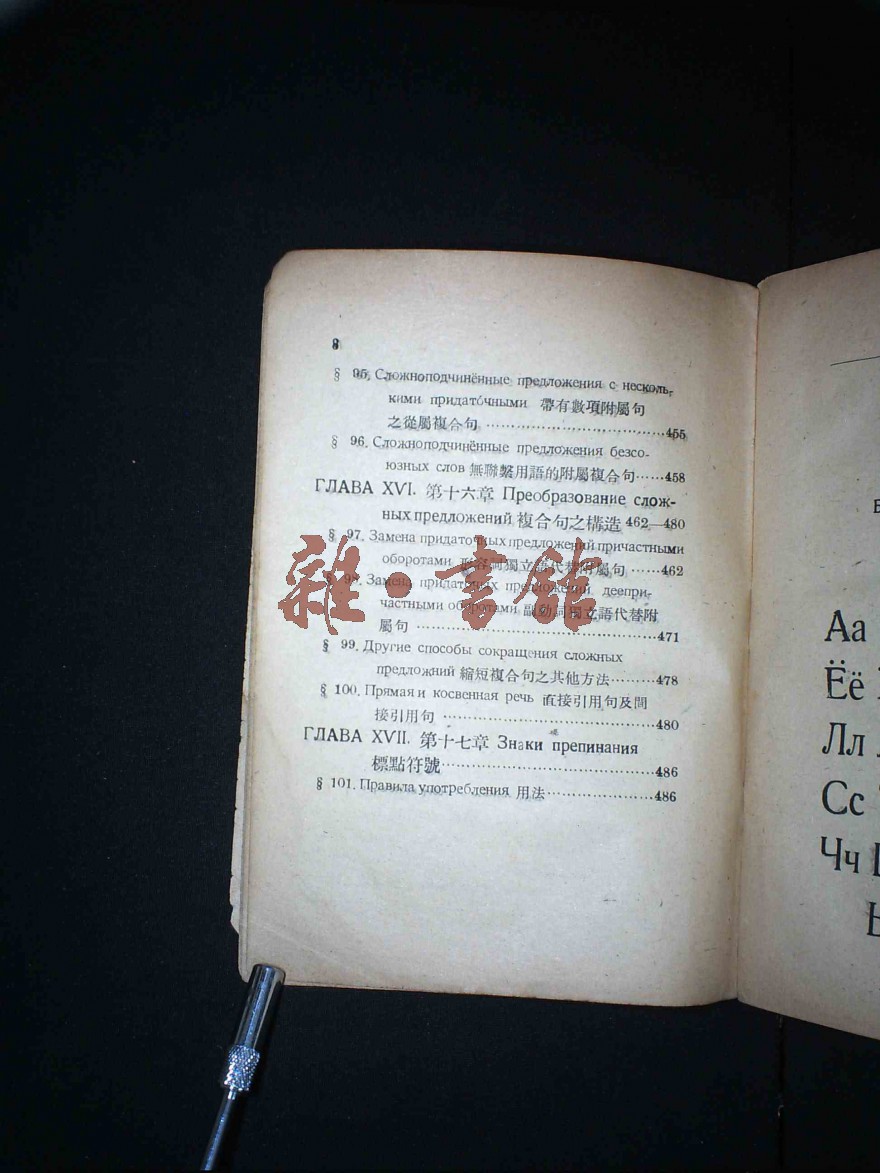 8
§ 95. Сложноподчинённые предложения с несколь-
кими придаточными 帶有數項附屬句
之從屬複合句 ……………………………455
§ 96. Сложноподчинённые предложения безсо-
юзных слов 無聯繫用語的附屬複合句……458
ГЛАВА XVI. 第十六章 Преобразование слож-
ных предложений 複合句之構造 462—480
§ 97. Замена придаточных предложений причастными
оборотами 形容詞獨立語代替附屬句 ……462
§ 98. Замена придаточных предложений деепри-
частными оборотами 副動詞獨立語代替附
屬句 ……………………………………471
§ 99. Другие способы сокращения сложных
предложний 縮短複合句之其他方法………478
§ 100. Прямая и косвенная речь 直接引用句及間
接引用句 …………………………………480
ГЛАВА XVII. 第十七章 Знаки препинания
標點符號…………………………………486
§ 101. Правила употребления 用法………………486
雜·書館
Аа
Ёё
Лл
Сс
Чч